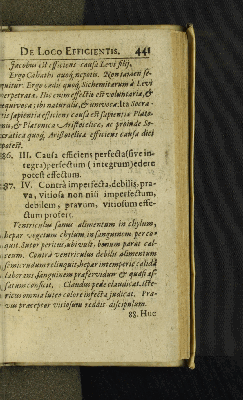 DE LOCO EFFICIENTIS. 441
Jacobus est efficiens causa Levi filij,
Ergo Cahathi quoq; nepotis. Non tamen se-
quitur. Ergo cædis quoq; Sichemitarum à Levi
perpetratæ. Hic enim effectio est voluntaria, &
æquivoca: ibi naturalis, & univoca. Ita Socra-
tis sapientia efficiens causa est sapientiæ Plato-
nis, & Platonica Aristotelicæ, ac proinde So-
cratica quoq; Aristotelicæ efficiens causa dici
potest.
86. III. Causa efficiens perfecta (sive in-
tegra) perfectum (integrum) edere
potest effectum.
87. IV. Contrà imperfecta, debilis, pra-
va, vitiosa non nisi imperfectum,
debilem, pravum, vitiosum effe-
ctum profert.
Ventriculus sanus alimentum in chylum,
hepar vegetum chylum in sanguinem perco-
quit. Sutor peritus, ubi vult, bonum parat cal-
ceum. Contrà ventriculus debilis alimentum
semicrudum relinquit, hepar intemperie calidâ
laborans, sanguinem præfervidum & quasi as-
satum conficit. Claudus pede claudicat, icte-
ricus omnia luteo colore infecta judicat. Pra-
vus præceptor vitiosum reddit discipulum.
88. Huc